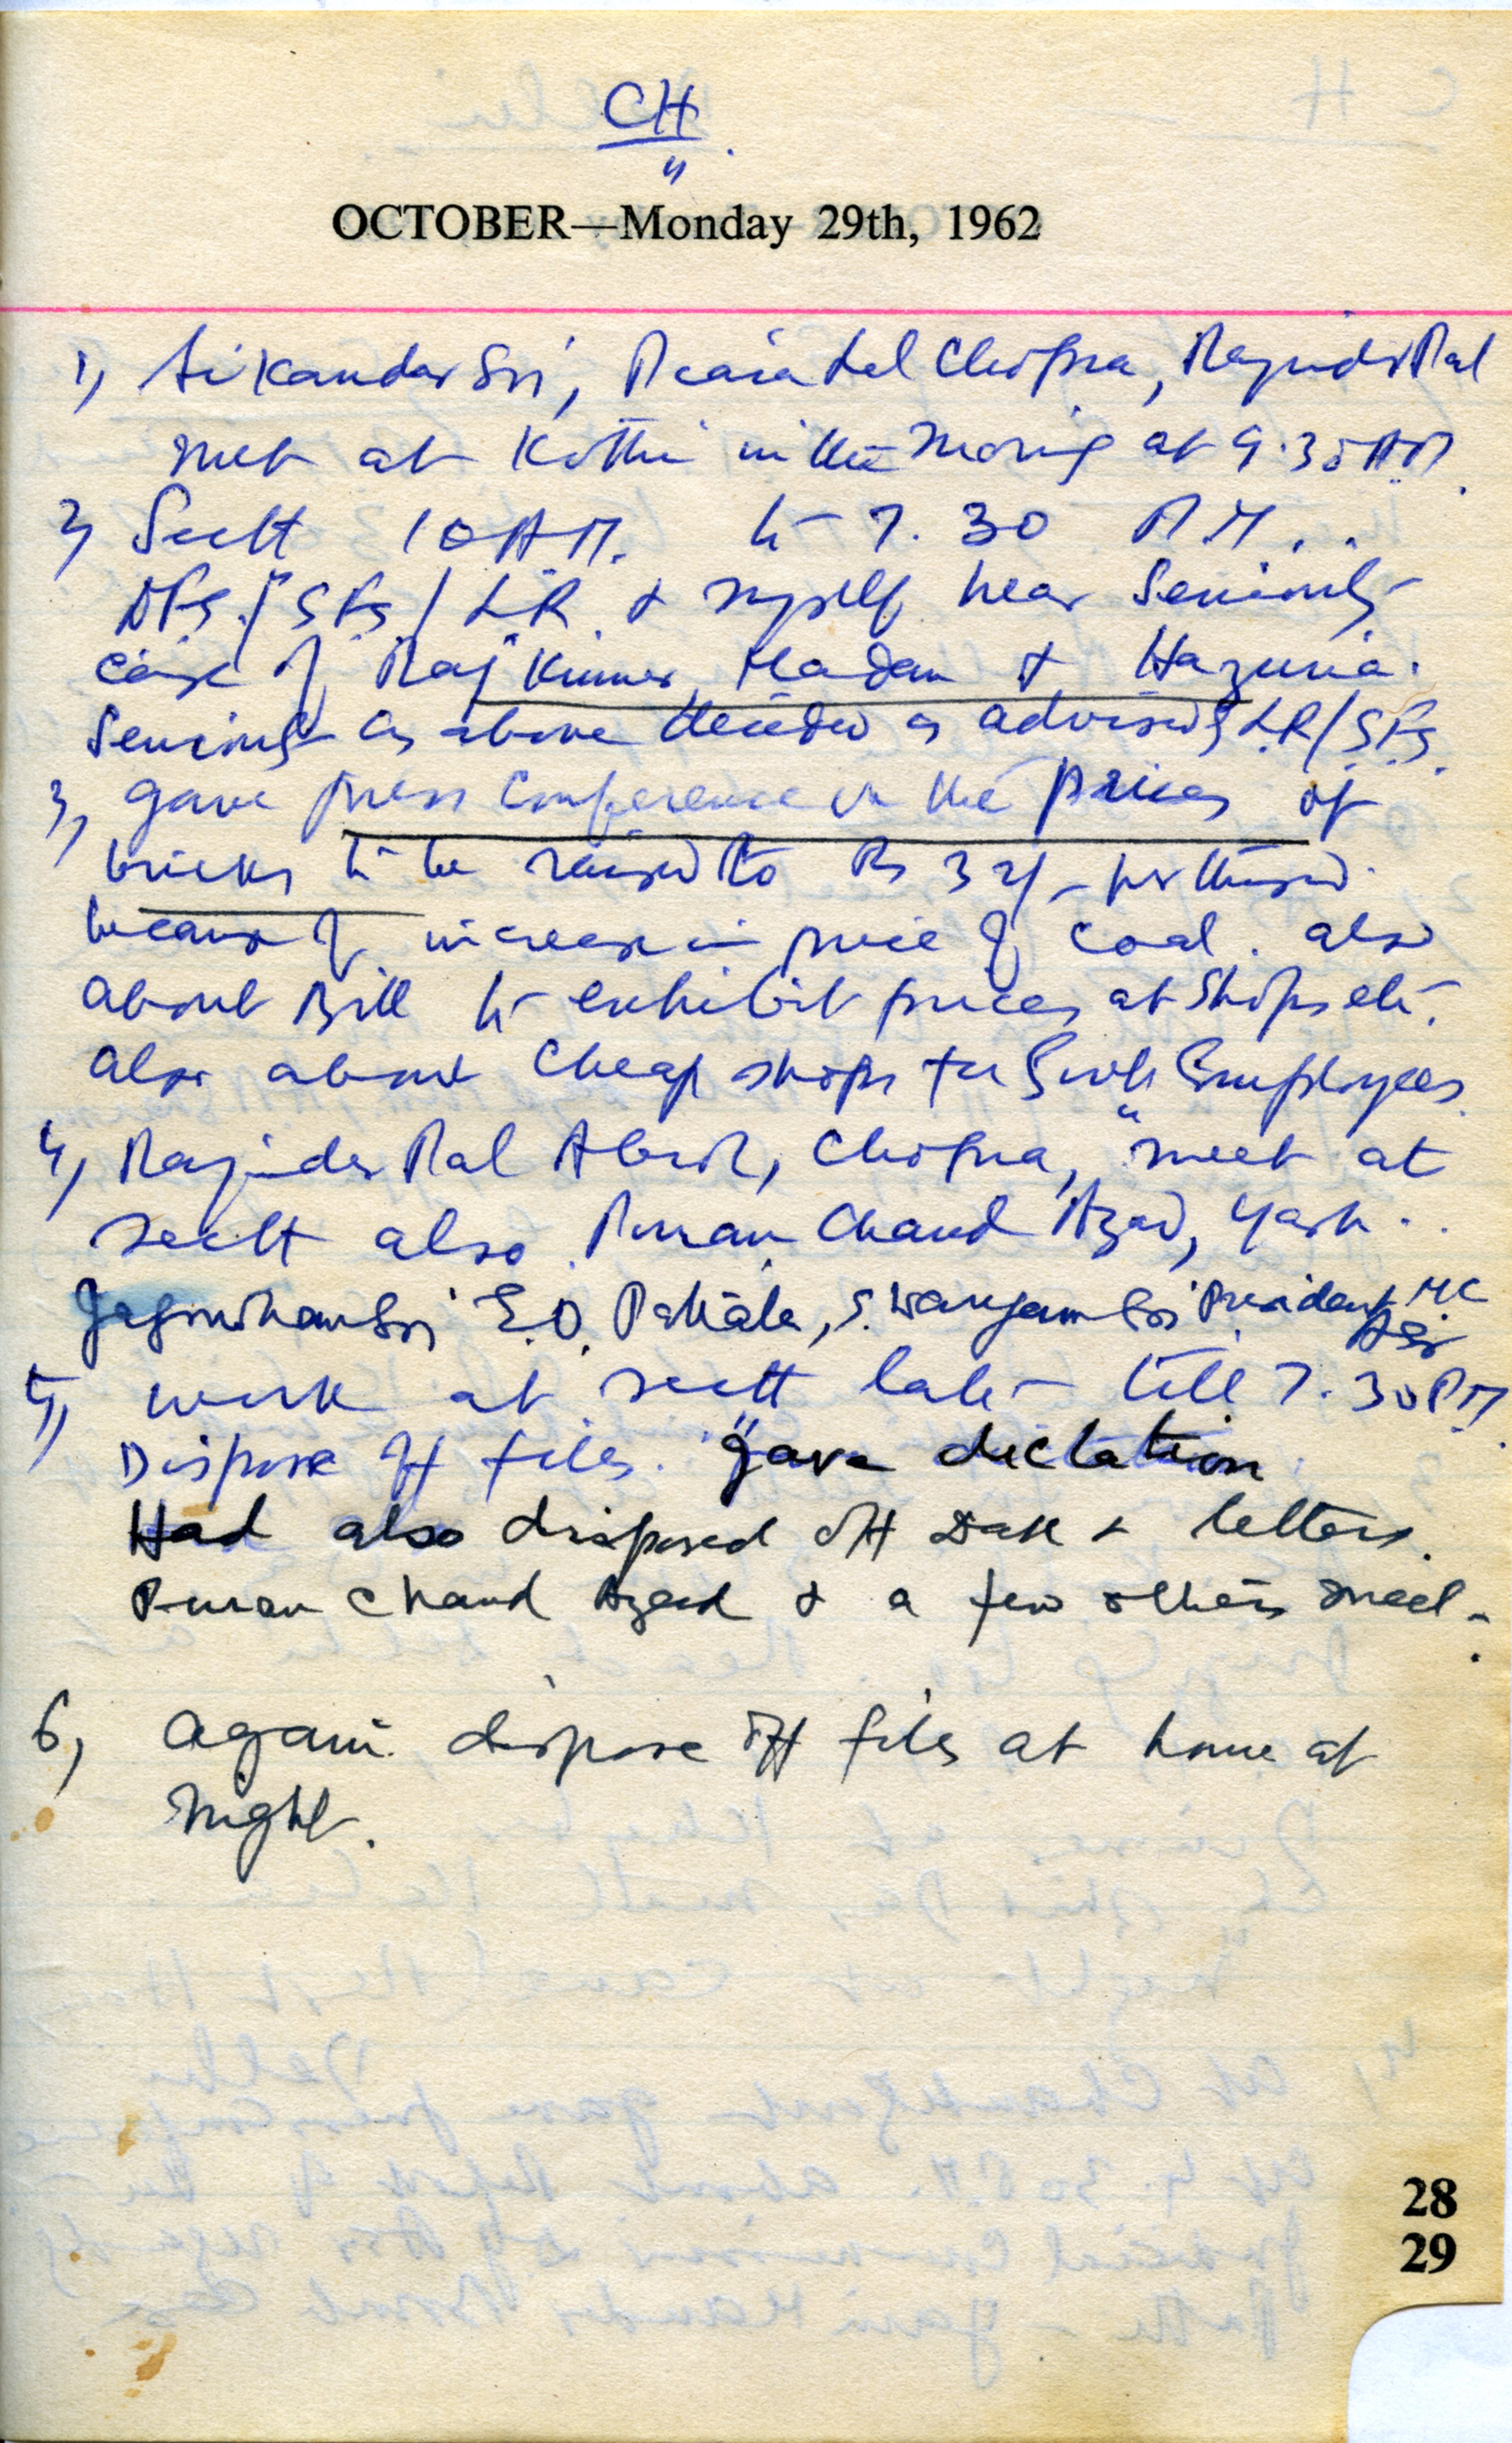 CH
"
OCTOBER—Monday 29th, 1962
1, Sikandar Sri, Piara Lal Chopra, Rajinder Pal
met at Kothi in the morning at 9.30 AM.
2, Sectt 10 AM. to 7.30 P.M..
DFS./SFS/LR & myself hear Seniority
case of Raj Kumar Madan & Hazuria.
Seniority as above decided as advised by LR/SFS.
3, gave press conference on the prices of
bricks to be raised to Rs 32/- per thousand.
because of increase in price of coal. also
about Bill to exhibit prices at shops etc.
also about cheap shops for Govt Employees.
4, Rajinder Pal Abrol, Chopra, meet at
sectt also Puran Chand Azad, Yash..
Jagmohan Sri E.O. Patiala, S. Sri President MC
5, work at sectt late till 7.30 PM.
Dispose off files. gave dictation
Had also disposed off Dak & letters.
Puran Chand Azad & a few others meet.
6, again dispose off files at home at
night.
28
29